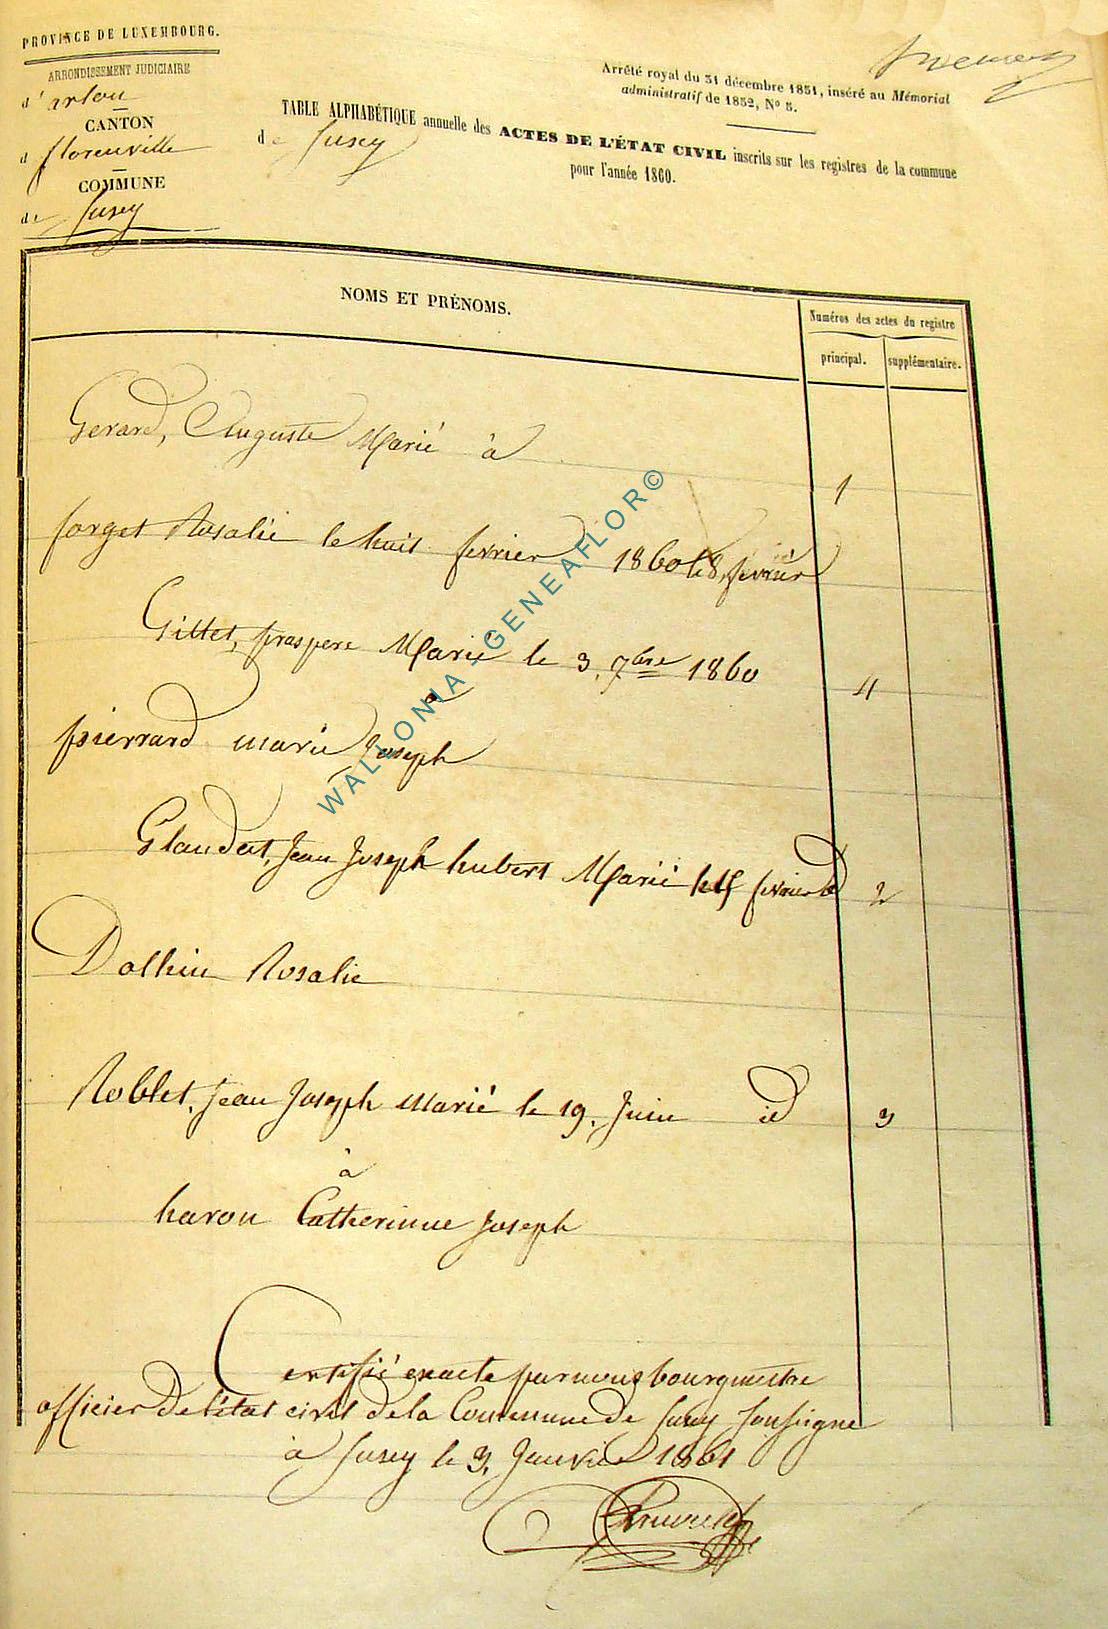 PROVINCE DE LUXEMBOURG.
ARRONDISSEMENT JUDICIAIRE
d'arlon
CANTON
d florenville
COMMUNE
de Susey
Arrêté royal du 31 décembre 1851, inséré au Mémorial
administratif de 1852, N° 5.
TABLE ALPHABÉTIQUE annuelle des ACTES DE L'ÉTAT CIVIL inscrits sur les registres de la commune
de Susey
pour l'année 1860.
NOMS ET PRÉNOMS.
Numéros des actes du registre
principal.
supplémentaire.
Gerard, Auguste Marié à
1
forget Rosalie le huit fevrier 1860 le 8, fevrier
Gillet, prospere Marié le 3, 7bre 1860
4
à
pierrard marie Joseph
Glaudert, Jean Joseph hubert Marié le 15 fevrier
2
Dolhin Rosalie
Roblet, Jean Joseph Marié le 19, Juin id
3
à
haron Catherinne Joseph
Certifié exacte par nous bourgmestre
officier de l'état civil de la Commune de Susey Soussigne
à Susey le 3, Janvier 1861
WALLONIA - GENEAFLOR©